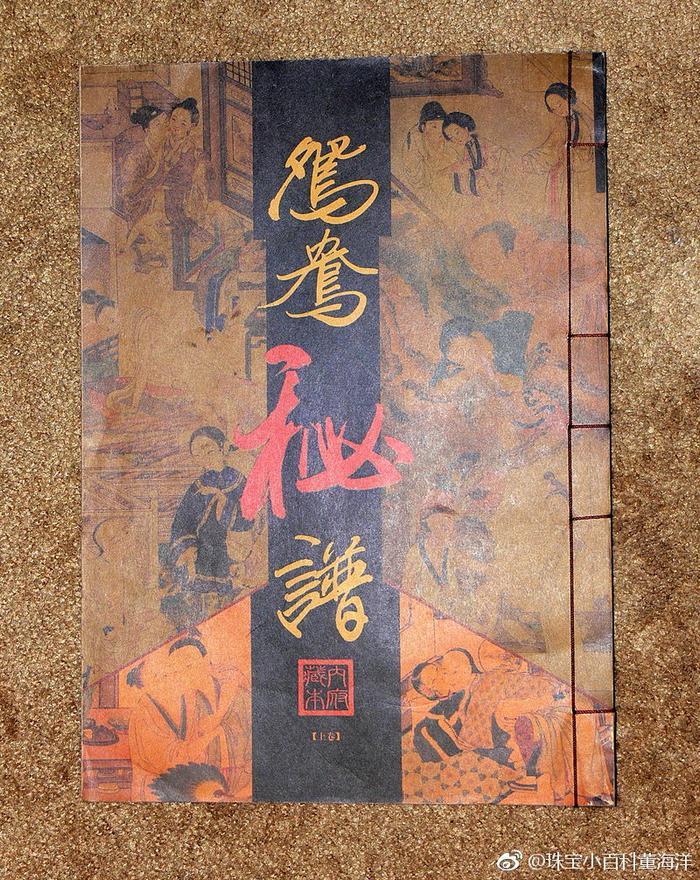 鴛鴦秘譜
内府
藏本
【上卷】
@珠宝小百科董海洋